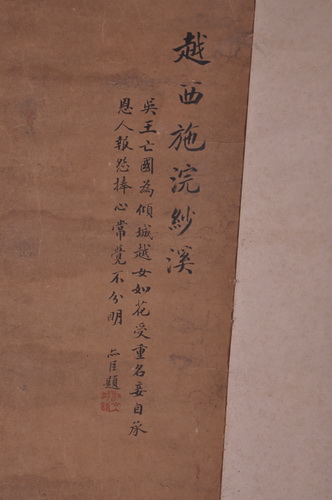 越西施浣紗溪
吳王亡國為傾城越女如花受重名妾自承
恩人報怨捧心常覺不分明
題